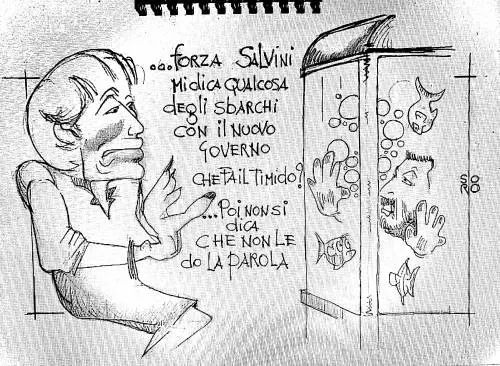 ...FORZA SALVINI
MI DICA QUALCOSA
degli sbarchi
CON il NUOVO
GOVERNO
CHE FA IL TIMIDO?
...POI NON SI
dica
CHE NON LE
do LA PAROLA